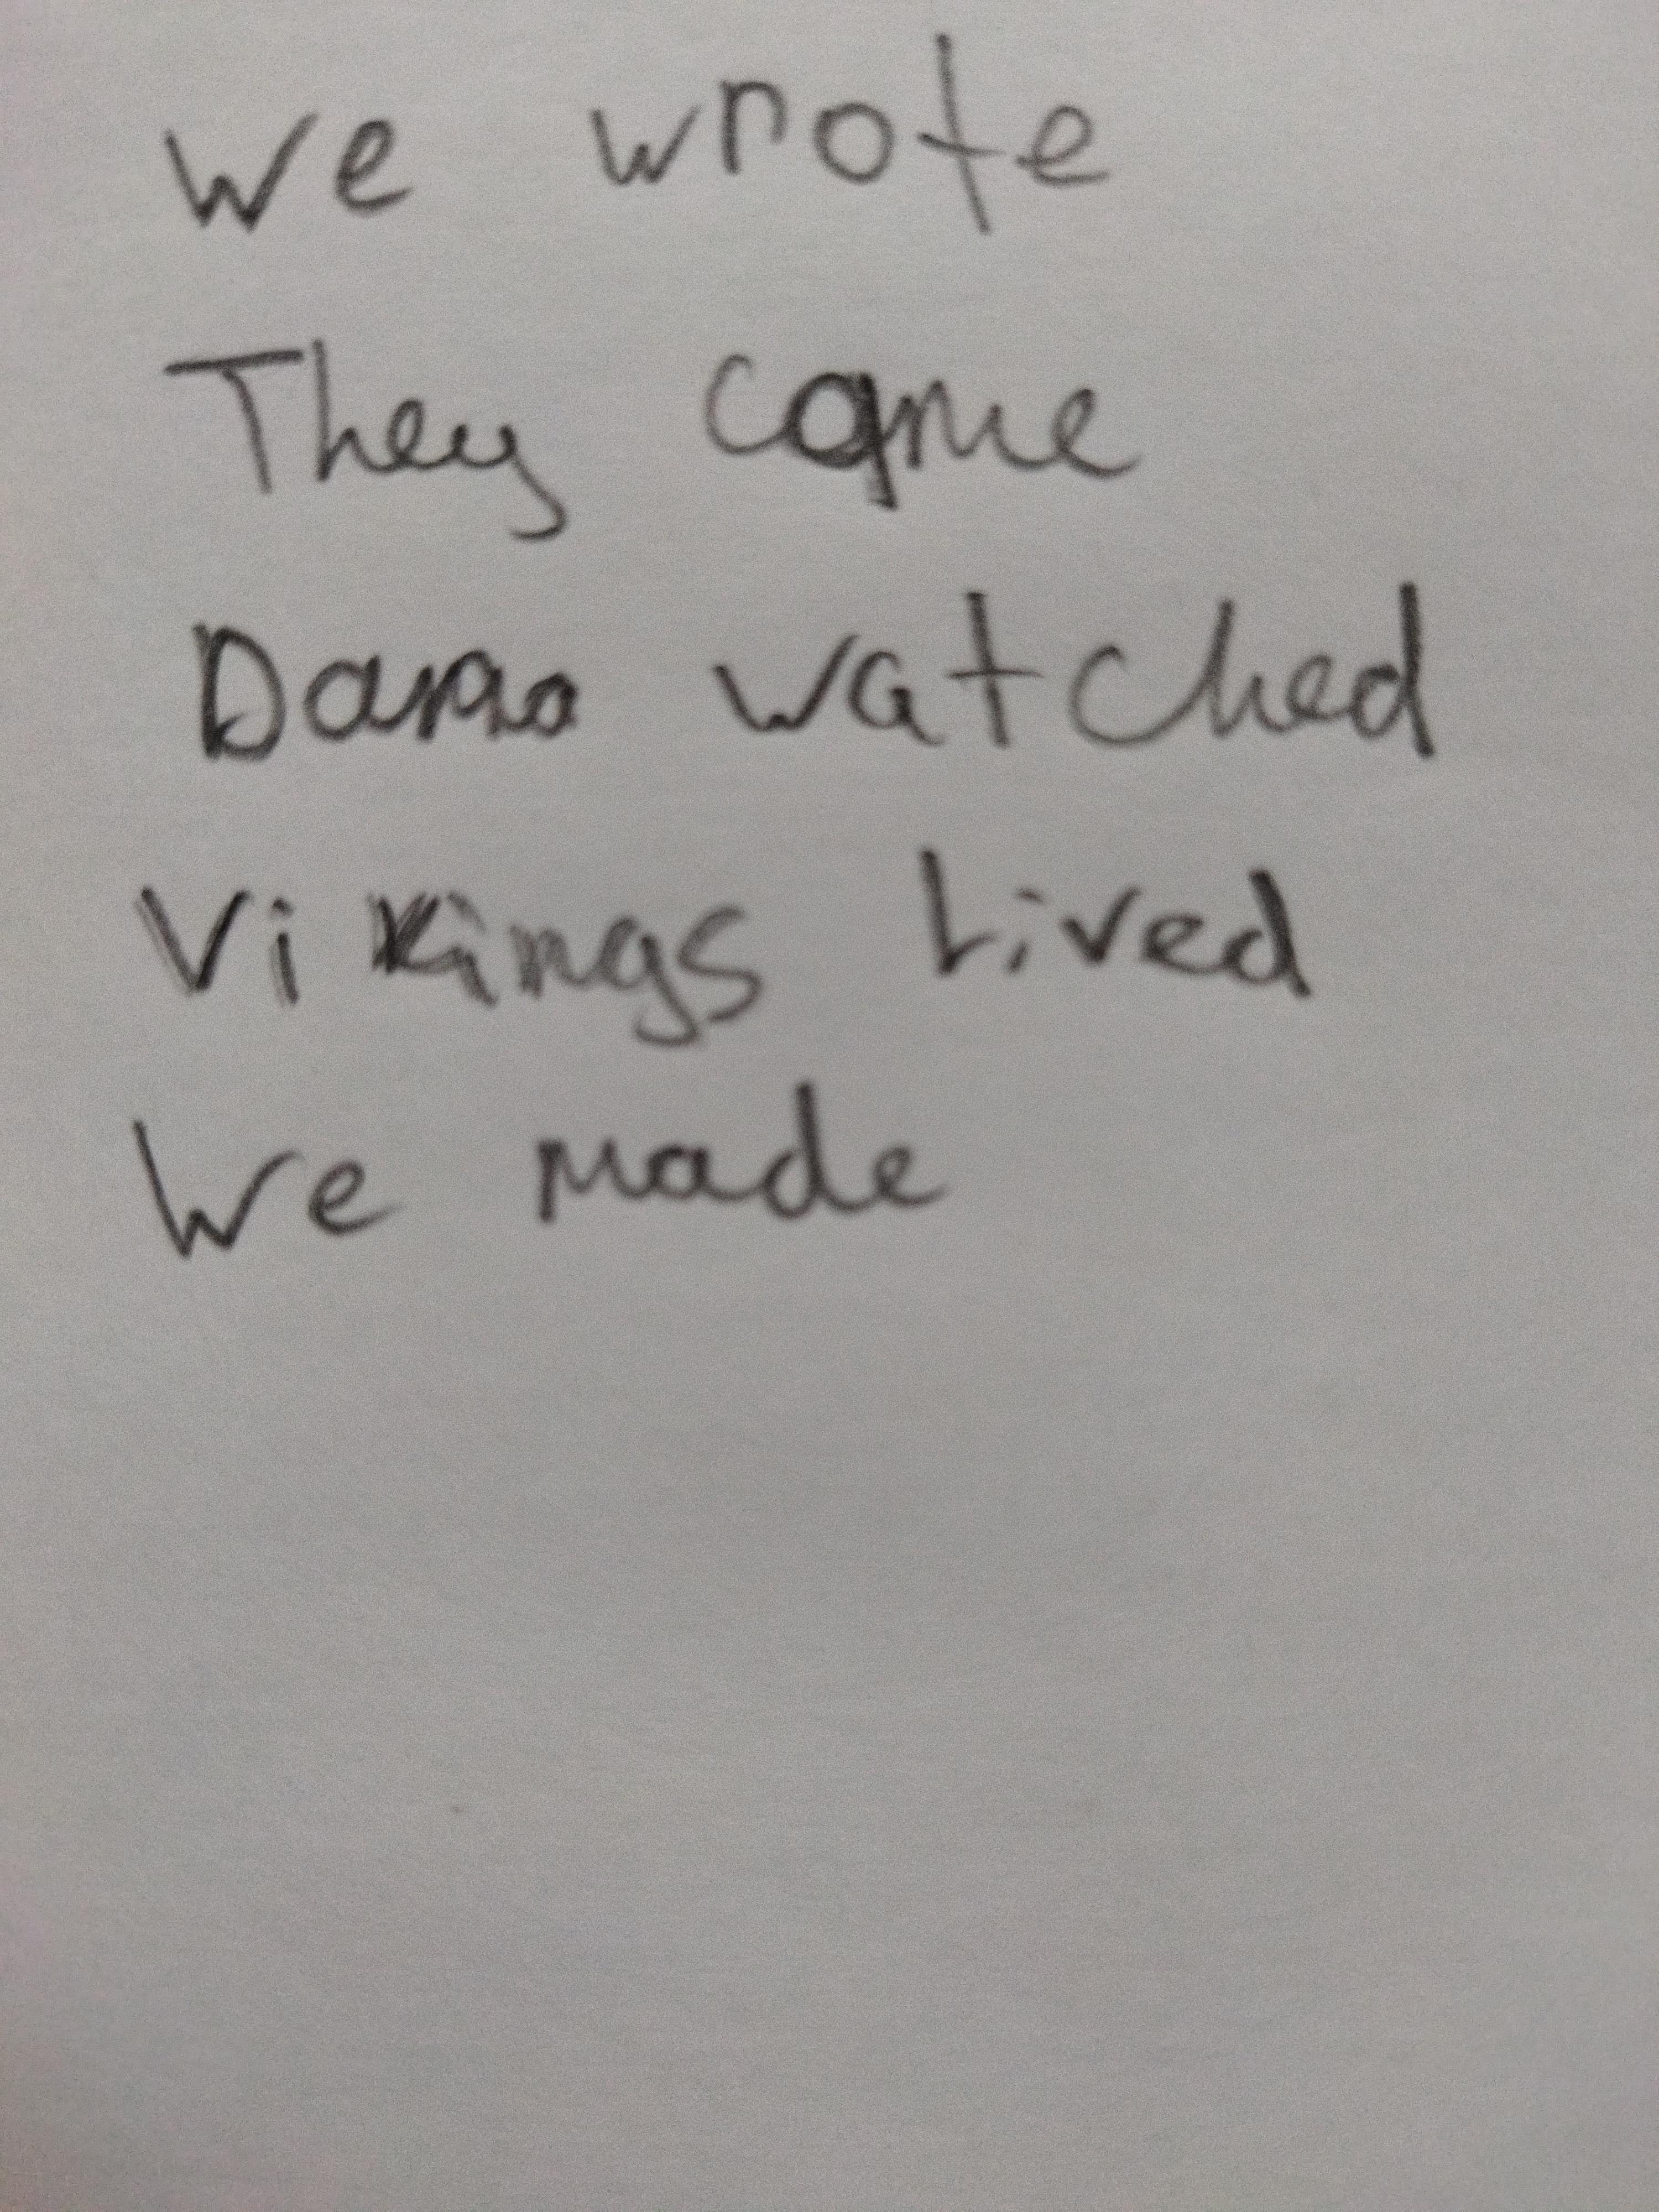 We wrote
They came
watched
Vikings Lived
We made